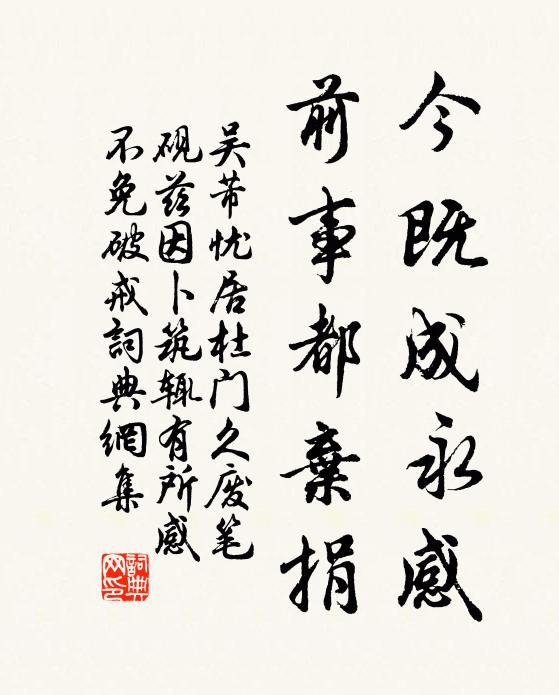 今既成永感
前事都棄捐
吴芾忧居杜门久废笔
砚兹因卜筑辄有所感
不免破戒詞典網集
詞典网印